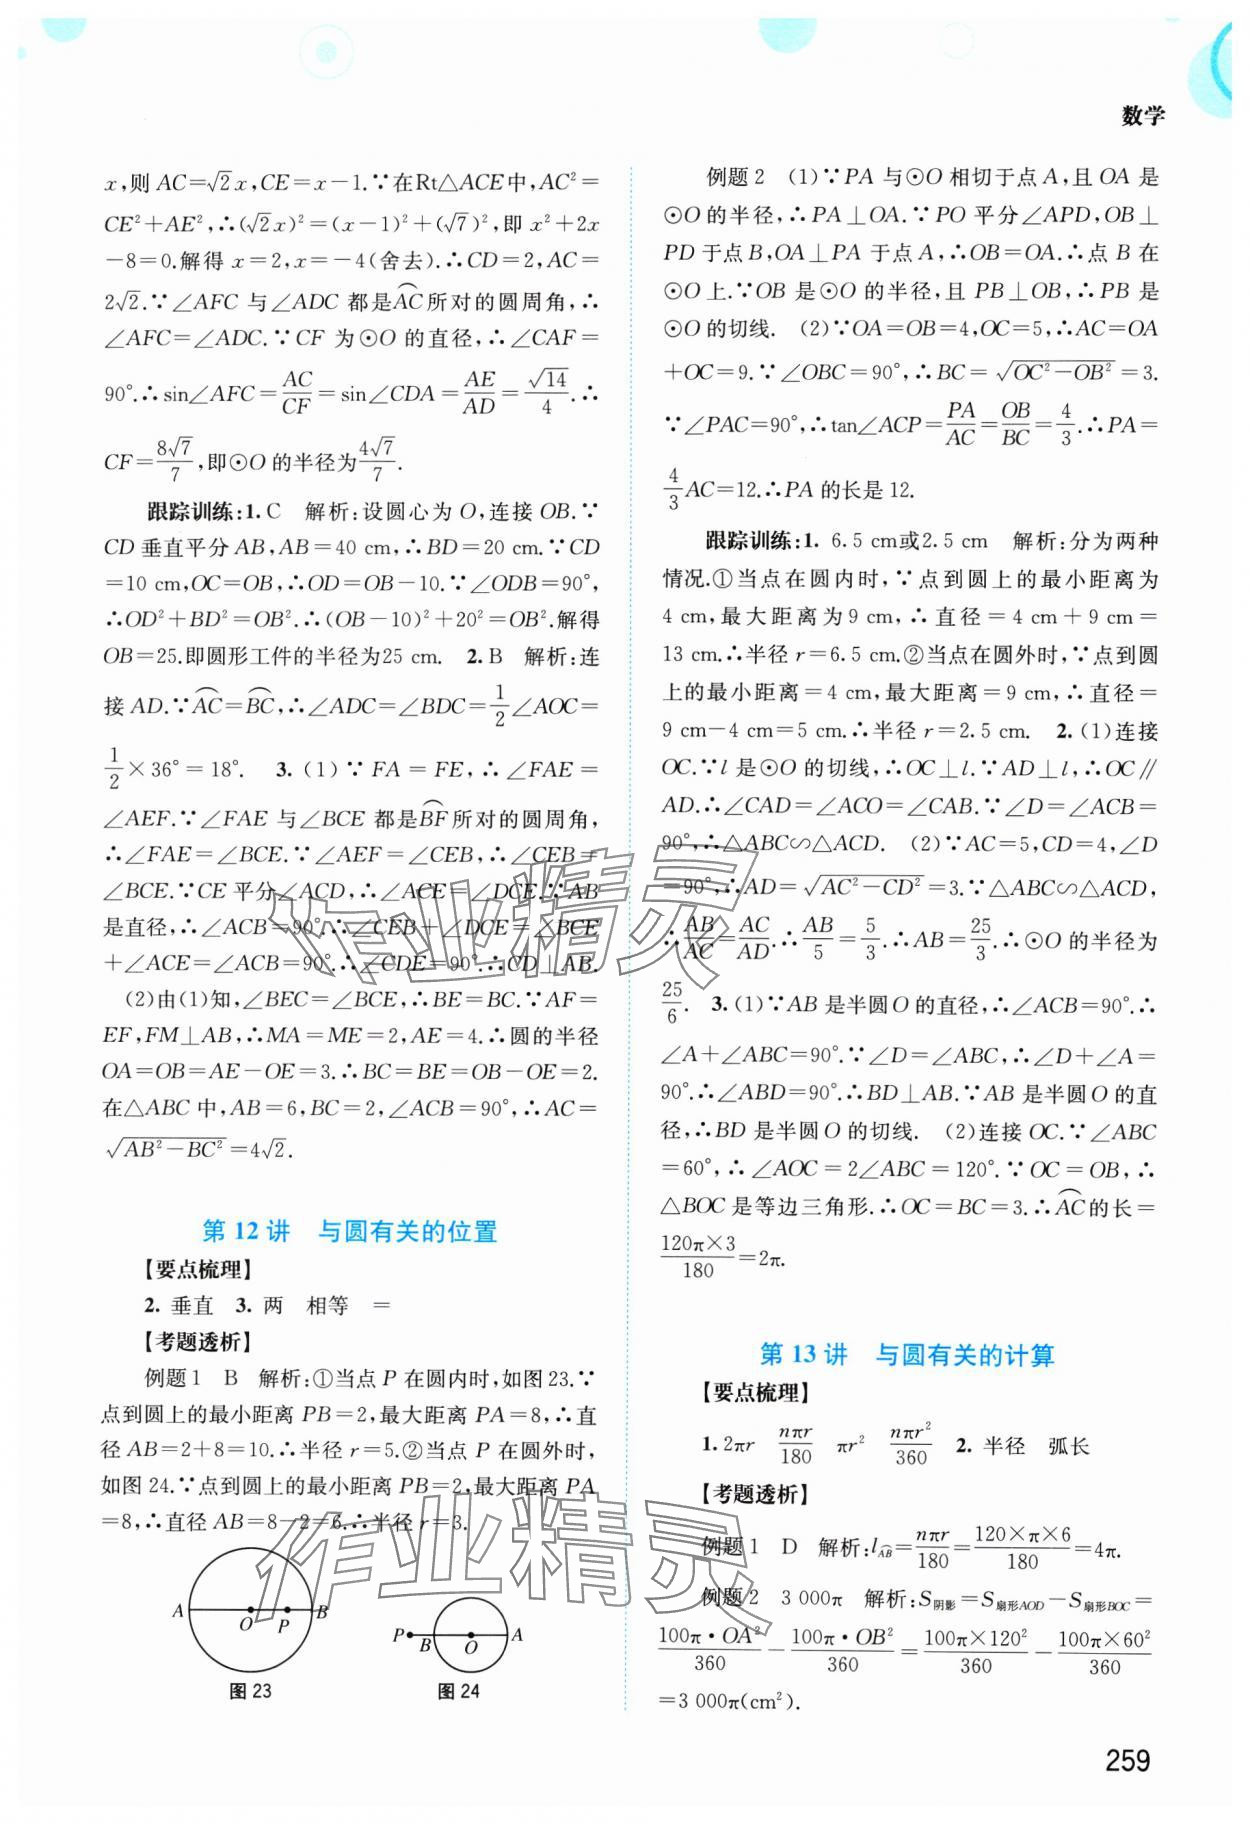 数学
x,则AC=√2x,CE=x-1.∵在Rt△ACE中,AC²=
CE²+AE²,∴(√2x)²=(x-1)²+(√7)²,即x²+2x
-8=0.解得x=2,x=-4(舍去).∴CD=2,AC=
2√2.∵∠AFC与∠ADC都是⌒AC所对的圆周角,∴
∠AFC=∠ADC.∵CF为⊙O的直径,∴∠CAF=
90°.∴sin∠AFC=AC/CF=sin∠CDA=AE/AD=√14/4.∴
CF=8√7/7,即⊙O的半径为4√7/7.
跟踪训练:1.C 解析:设圆心为O,连接OB.∵
CD垂直平分AB,AB=40 cm,∴BD=20 cm.∵CD
=10 cm,OC=OB,∴OD=OB-10.∵∠ODB=90°,
∴OD²+BD²=OB².∴(OB-10)²+20²=OB².解得
OB=25.即圆形工件的半径为25 cm. 2.B 解析:连
接AD.∵⌒AC=⌒BC,∴∠ADC=∠BDC=1/2∠AOC=
1/2×36°=18°. 3.(1)∵FA=FE,∴∠FAE=
∠AEF.∵∠FAE与∠BCE都是⌒BF所对的圆周角,
∴∠FAE=∠BCE.∵∠AEF=∠CEB,∴∠CEB=
∠BCE.∵CE平分∠ACD,∴∠ACE=∠DCE.∵AB
是直径,∴∠ACB=90°.∴∠CEB+∠DCE=∠BCE
+∠ACE=∠ACB=90°.∴∠CDE=90°.∴CD⊥AB.
(2)由(1)知,∠BEC=∠BCE,∴BE=BC.∵AF=
EF,FM⊥AB,∴MA=ME=2,AE=4.∴圆的半径
OA=OB=AE-OE=3.∴BC=BE=OB-OE=2.
在△ABC中,AB=6,BC=2,∠ACB=90°,∴AC=
√(AB²-BC²)=4√2.
第12讲 与圆有关的位置
【要点梳理】
2.垂直 3.两 相等 =
【考题透析】
例题1 B 解析:①当点P在圆内时,如图23.∵
点到圆上的最小距离PB=2,最大距离PA=8,∴直
径AB=2+8=10.∴半径r=5.②当点P在圆外时,
如图24.∵点到圆上的最小距离PB=2,最大距离PA
=8,∴直径AB=8-2=6.∴半径r=3.
A O P B
图23
P B O A
图24
例题2 (1)∵PA与⊙O相切于点A,且OA是
⊙O的半径,∴PA⊥OA.∵PO平分∠APD,OB⊥
PD于点B,OA⊥PA于点A,∴OB=OA.∴点B在
⊙O上.∵OB是⊙O的半径,且PB⊥OB,∴PB是
⊙O的切线. (2)∵OA=OB=4,OC=5,∴AC=OA
+OC=9.∵∠OBC=90°,∴BC=√(OC²-OB²)=3.
∵∠PAC=90°,∴tan∠ACP=PA/AC=OB/BC=4/3.∴PA=
4/3AC=12.∴PA的长是12.
跟踪训练:1. 6.5 cm或2.5 cm 解析:分为两种
情况.①当点在圆内时,∵点到圆上的最小距离为
4 cm,最大距离为9 cm,∴直径=4 cm+9 cm=
13 cm.∴半径r=6.5 cm.②当点在圆外时,∵点到圆
上的最小距离=4 cm,最大距离=9 cm,∴直径=
9 cm-4 cm=5 cm.∴半径r=2.5 cm. 2.(1)连接
OC.∵l是⊙O的切线,∴OC⊥l.∵AD⊥l,∴OC∥
AD.∴∠CAD=∠ACO=∠CAB.∵∠D=∠ACB=
90°,∴△ABC∽△ACD. (2)∵AC=5,CD=4,∠D
=90°,∴AD=√(AC²-CD²)=3.∵△ABC∽△ACD,
∴AB/AC=AC/AD.∴AB/5=5/3.∴AB=25/3.∴⊙O的半径为
25/6. 3.(1)∵AB是半圆O的直径,∴∠ACB=90°.∴
∠A+∠ABC=90°.∵∠D=∠ABC,∴∠D+∠A=
90°.∴∠ABD=90°.∴BD⊥AB.∵AB是半圆O的直
径,∴BD是半圆O的切线. (2)连接OC.∵∠ABC
=60°,∴∠AOC=2∠ABC=120°.∵OC=OB,∴
△BOC是等边三角形.∴OC=BC=3.∴⌒AC的长=
120π×3/180=2π.
第13讲 与圆有关的计算
【要点梳理】
1.2πr nπr/180 πr² nπr²/360 2.半径 弧长
【考题透析】
例题1 D 解析:l⌒AB=nπr/180=120×π×6/180=4π.
例题2 3 000π 解析:S阴影=S扇形AOD-S扇形BOC=
100π·OA²/360-100π·OB²/360=100π×120²/360-100π×60²/360
=3 000π(cm²).
259
作业精灵
作业精灵